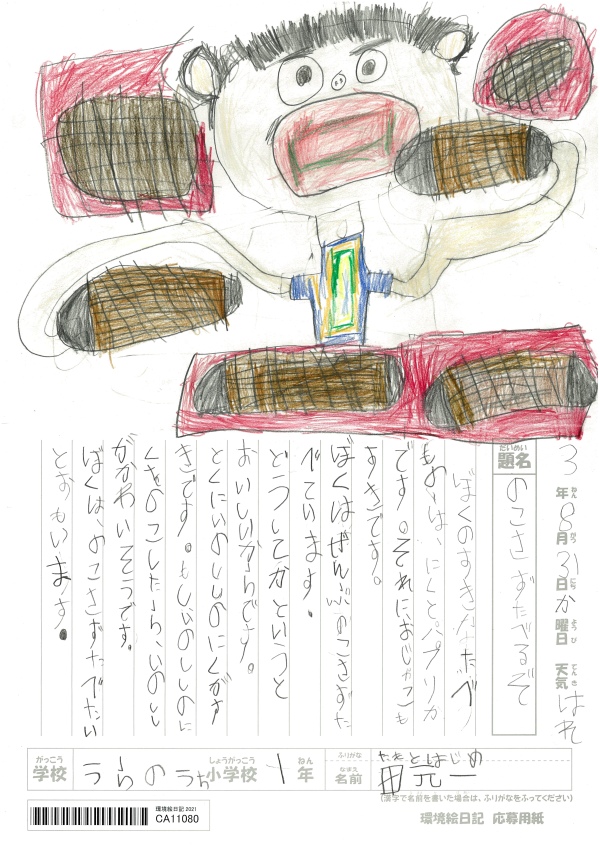 3年8月31日か曜日 天気はれ
ねん がつ にち ようび てんき
だいめい
題名
のこさずたべるぞ
ぼくのすきなたべ
ものは、にくとパプリカ
です。それにおじゃこも
すきです。
ぼくはぜんぶのこさずた
べています。
どうしてかというと
おいしいからです。
とくにいのししのにくがす
きです。もしいのししのに
くをのこしたら、いのしし
がかわいそうです。
ぼくは、のこさずたべたい
とおもいます。
がっこう
学校
うらのうち
しょうがっこう
小学校
1
ねん
年
ふりがな
なまえ
名前
たもとはじめ
田元一
(漢字で名前を書いた場合は、ふりがなをふってください)
環境絵日記 2021
CA11080
環境絵日記 応募用紙